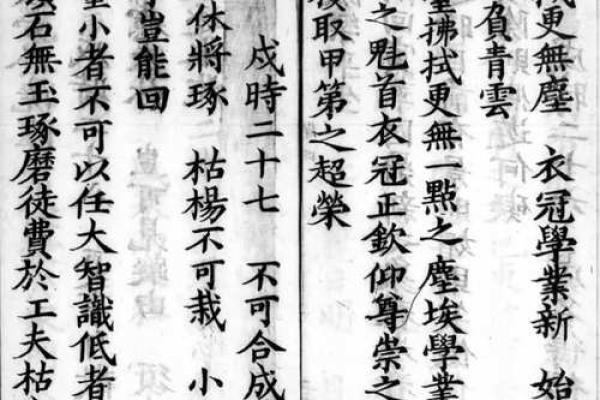 拭更無塵 衣冠學業新 始
負青雲
拂拭更無一點之塵埃學業
之魁首衣冠正欽仰尊崇之
取甲第之超榮
戌時二十七 不可合成
休將琢 枯楊不可栽 小
豈能回
量小者不可以任大智識低者
石無玉琢磨徒費於工夫枯